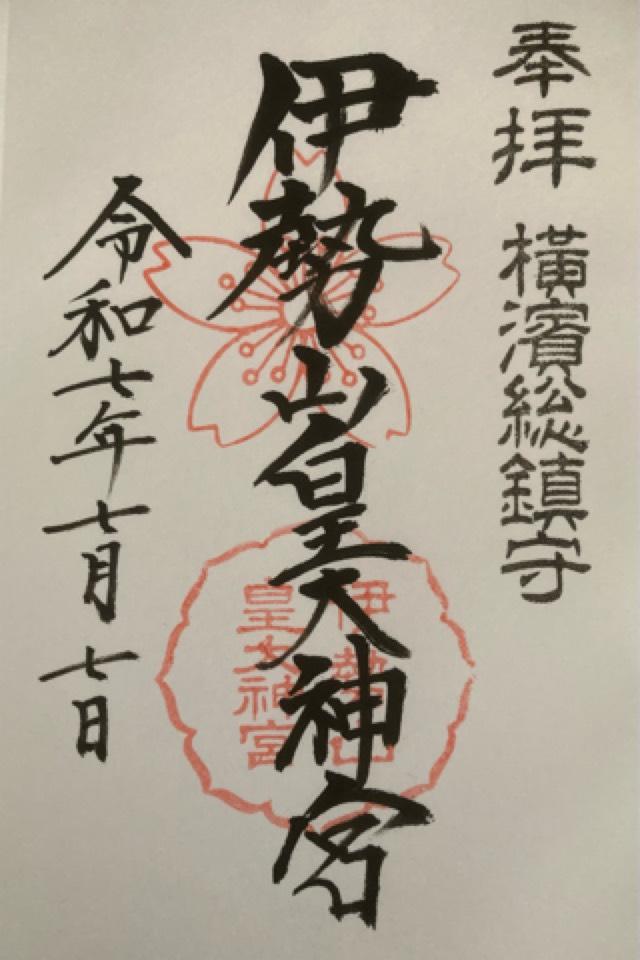 奉拝 横濱総鎮守
伊勢山皇大神宮
伊勢山
皇大神宮
令和七年七月七日